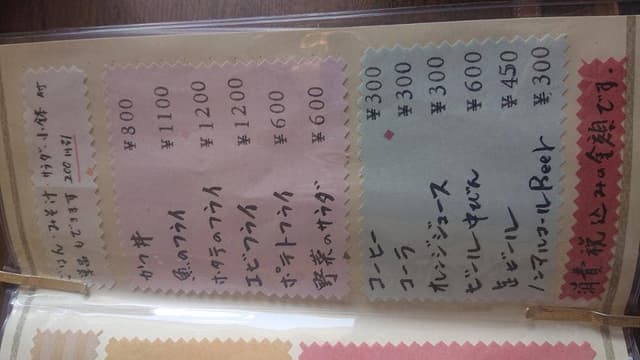 ごはん・みそ汁・サラダ小鉢付
できます 200円引
かつ丼 ¥800
魚のフライ ¥1100
ホタテのフライ ¥1200
エビフライ ¥1200
ポテトフライ ¥600
野菜のサラダ ¥600
コーヒー ¥300
コーラ ¥300
オレンジジュース ¥300
ビール中びん ¥600
缶ビール ¥450
ノンアルコールBeer ¥300
消費税込みの金額です。